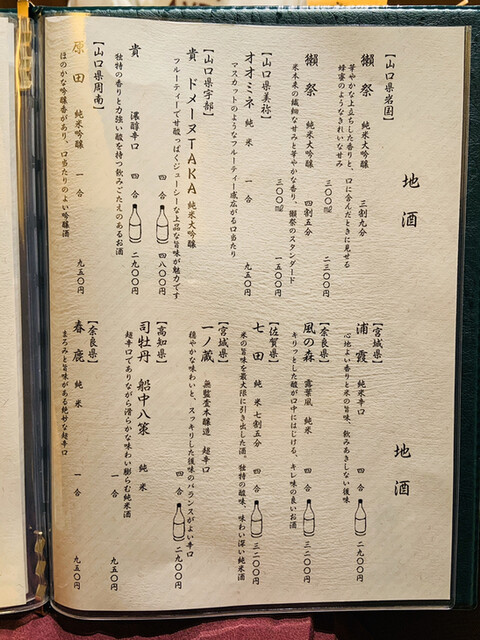 地酒
【山口県岩国】
獺祭 純米大吟醸 三割九分 三〇〇㎖ 二三〇〇円
華やかな上立ちした香りと、口に含んだときに見せる
蜂蜜のようなきれいな甘み
獺祭 純米大吟醸 四割五分 三〇〇㎖ 一五〇〇円
米本来の繊細な甘みと華やかな香り、獺祭のスタンダード
【山口県美祢】
オオミネ 純米 一合 九五〇円
マスカットのようなフルーティー感広がる口当たり
【山口県宇部】
貴 ドメーヌTAKA 純米大吟醸 四合 四八〇〇円
フルーティーで甘酸っぱくジューシーな上品な旨味が魅力です
貴 濃醇辛口 四合 二九〇〇円
独特の香りと力強い酸を持つ飲みごたえのあるお酒
【山口県周南】
原田 純米吟醸 一合 九五〇円
ほのかな吟醸香があり、口当たりのよい吟醸酒
地酒
【宮城県】
浦霞 純米辛口 四合 二九〇〇円
心地よい香りと米の旨味、飲みあきしない後味
【奈良県】
風の森 露葉風 純米 四合 三二〇〇円
キリッとした酸が口中にはじける、キレ味の良いお酒
【佐賀県】
七田 純米 七割五分 四合 三二〇〇円
米の旨味を最大限に引き出した酒。独特の酸味、味わい深い純米酒
【宮城県】
一ノ蔵 無鑑査本醸造 超辛口 四合 二九〇〇円
穏やかな味わいと、スッキリした後味のバランスがよい辛口
【高知県】
司牡丹 船中八策 純米 一合 九五〇円
超辛口でありながら滑らかな味わい膨らむ純米酒
【奈良県】
春鹿 純米 一合 九五〇円
まろみと旨味がある絶妙な超辛口